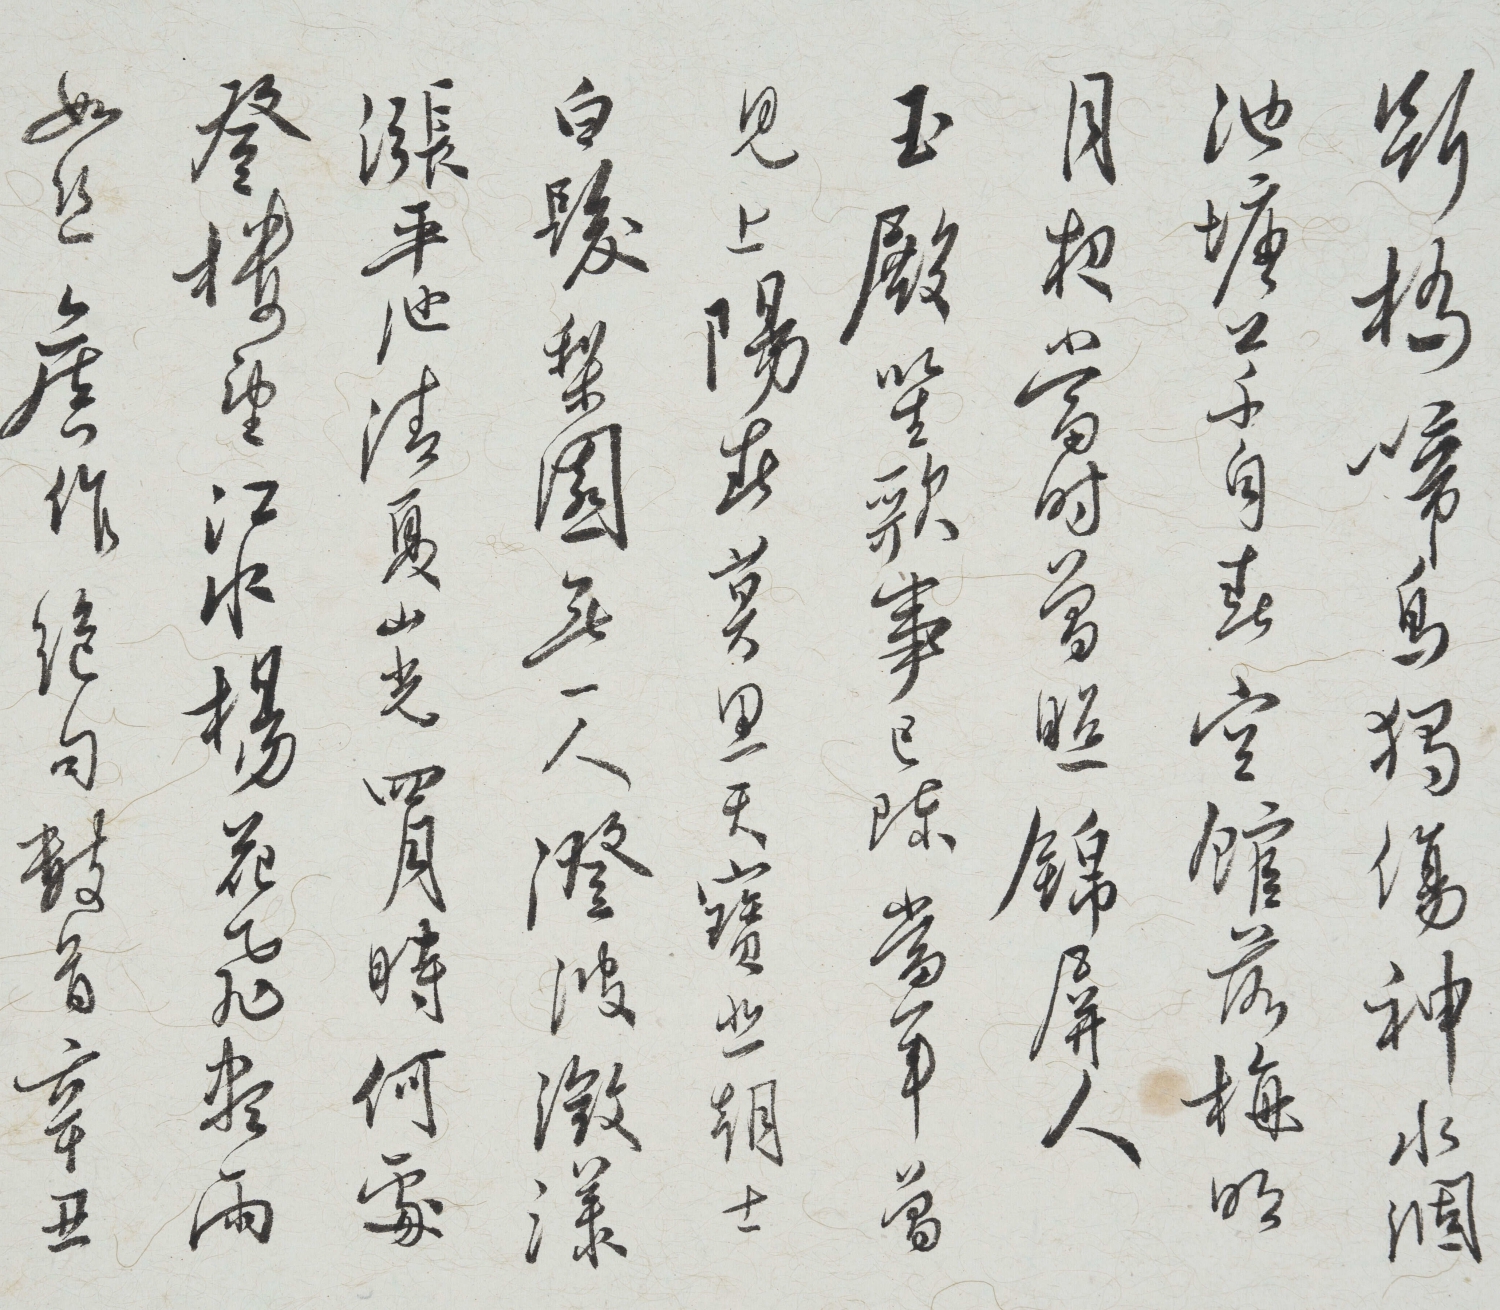 斷橋啼鳥獨傷神水涸
池塘草自春空館落梅明
月夜當時曾照錦屏人
玉殿笙歌事已陳當年曾
見上陽春莫思天寶年朝士
白髮梨園無一人澄波激漾
漲平池清夏山光四月時何處
登樓望江水楊花飛盡雨
如絲 作絕句數首辛丑